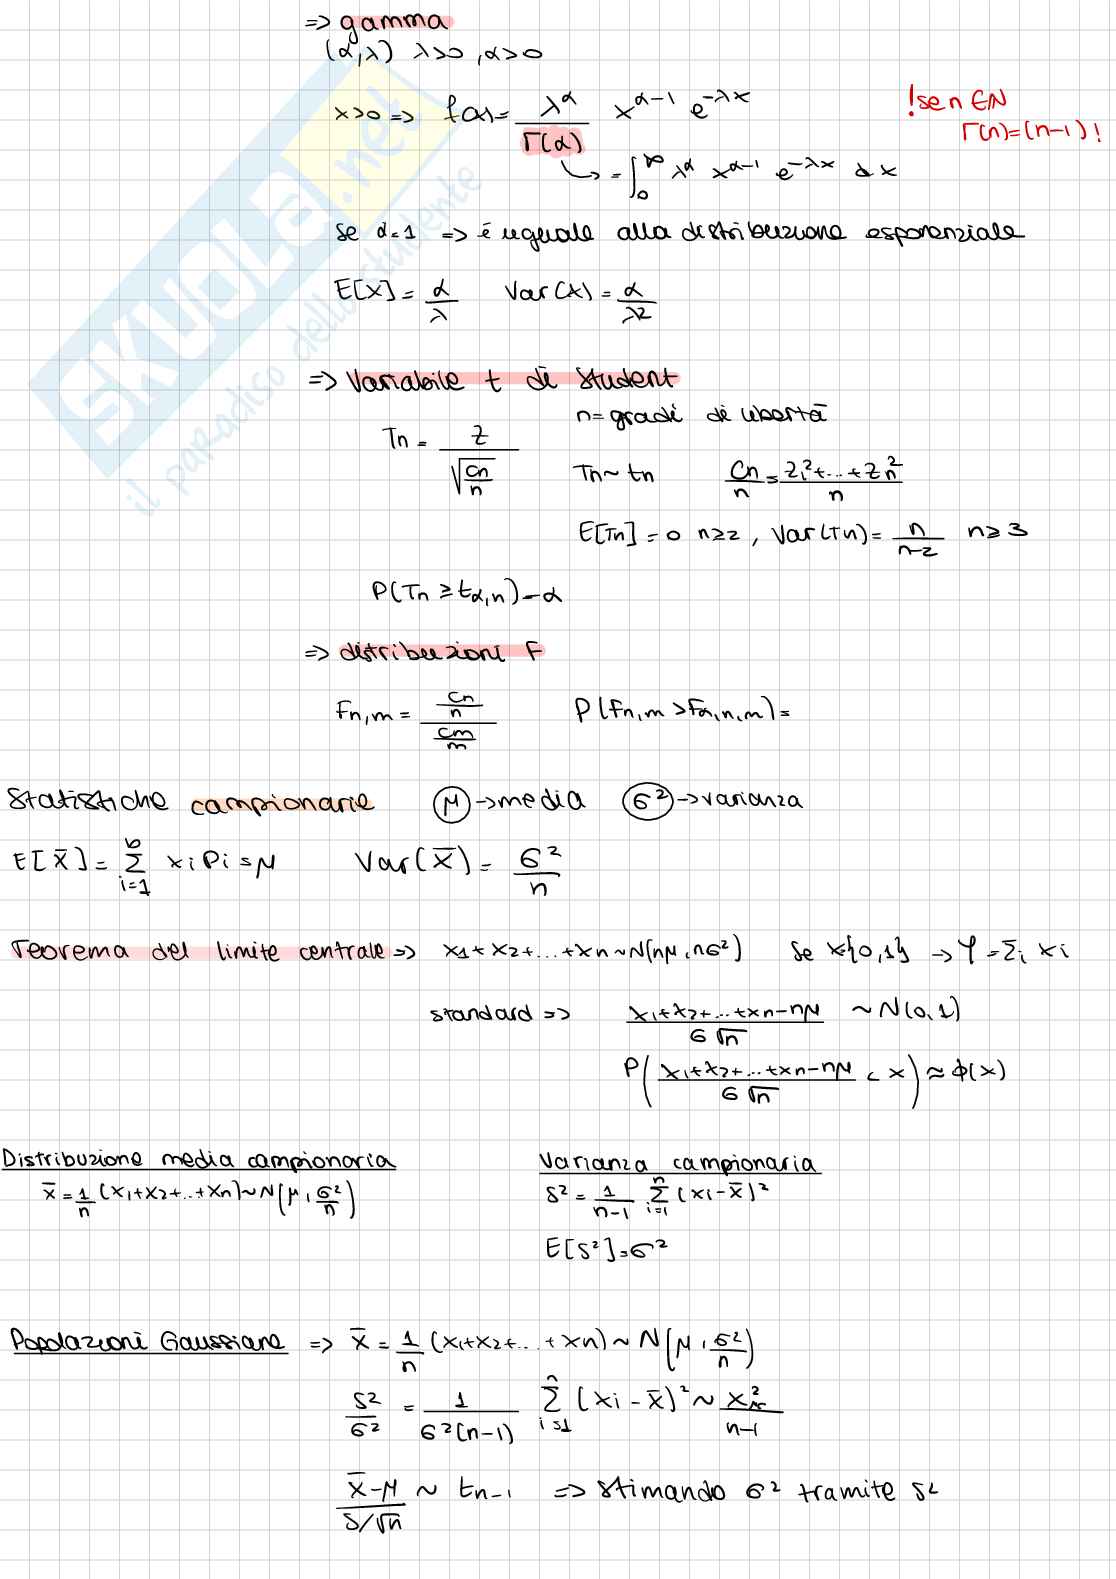 => gamma
(α,λ) λ>0, α>0
x>0 => f(x)= λ^α / Γ(α) x^(α-1) e^(-λx)
!se n ∈ N
Γ(n)=(n-1)!
↳ = ∫₀^∞ λ^α x^(α-1) e^(-λx) dx
se α=1 => è uguale alla distribuzione esponenziale
E[X]= α/λ Var(X)= α/λ²
=> Variabile t di Student
n= gradi di libertà
Tn = Z / √(Cn/n) Tn~tn Cn/n = (Z₁²+...+Zn²)/n
E[Tn]=0 n≥2, Var(Tn)= n/(n-2) n≥3
P(Tn ≥ tα,n)=α
=> distribuzioni F
Fn,m = (Cn/n) / (Cm/m) P(Fn,m > Fα,n,m)=
Statistiche campionarie μ → media σ² → varianza
E[X̄]= Σ i=1 xi Pi = μ Var(X̄)= σ²/n
Teorema del limite centrale => x1+x2+...+xn~N(nμ, nσ²) Se x{0,1} → Y=Σi xi
standard => (x1+x2+...+xn-nμ)/(σ√n) ~ N(0,1)
P((x1+x2+...+xn-nμ)/(σ√n) < x) ≈ Φ(x)
Distribuzione media campionaria
x̄ = 1/n (x1+x2+...+xn)~N(μ, σ²/n)
Varianza campionaria
S² = 1/(n-1) Σ i=1 n (xi-x̄)²
E[S²]=σ²
Popolazioni Gaussiane => x̄ = 1/n (x1+x2+...+xn) ~ N(μ, σ²/n)
S²/σ² = 1/(σ²(n-1)) Σ i=1 n (xi-x̄)² ~ X²/(n-1)
(x̄-μ)/(S/√n) ~ tn-1 => stimando σ² tramite S²
SKUOLA.net
il paradiso dello studente